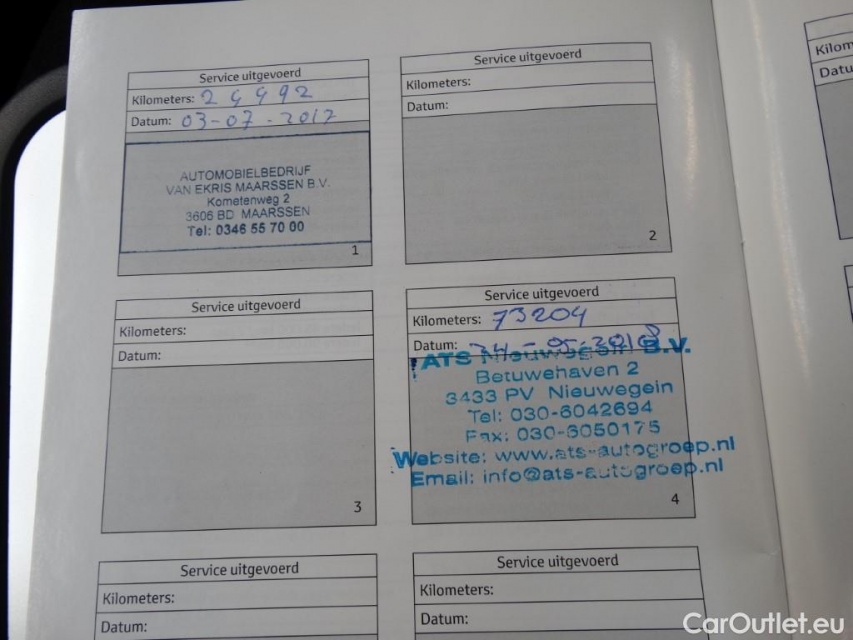 Service uitgevoerd
Kilometers: 24492
Datum: 03-07-2012
AUTOMOBIELBEDRIJF
VAN EKRIS MAARSSEN B.V.
Kometenweg 2
3606 BD MAARSSEN
Tel: 0346 55 70 00
1
Service uitgevoerd
Kilometers:
Datum:
2
Service uitgevoerd
Kilometers:
Datum:
3
Service uitgevoerd
Kilometers: 73204
Datum: 24-05-2018
ATS Nieuwegein B.V.
Betuwehaven 2
3433 PV Nieuwegein
Tel: 030-6042694
Fax: 030-6050175
Website: www.ats-autogroep.nl
Email: info@ats-autogroep.nl
4
Service uitgevoerd
Kilometers:
Datum:
Service uitgevoerd
Kilometers:
Datum:
CarOutlet.eu